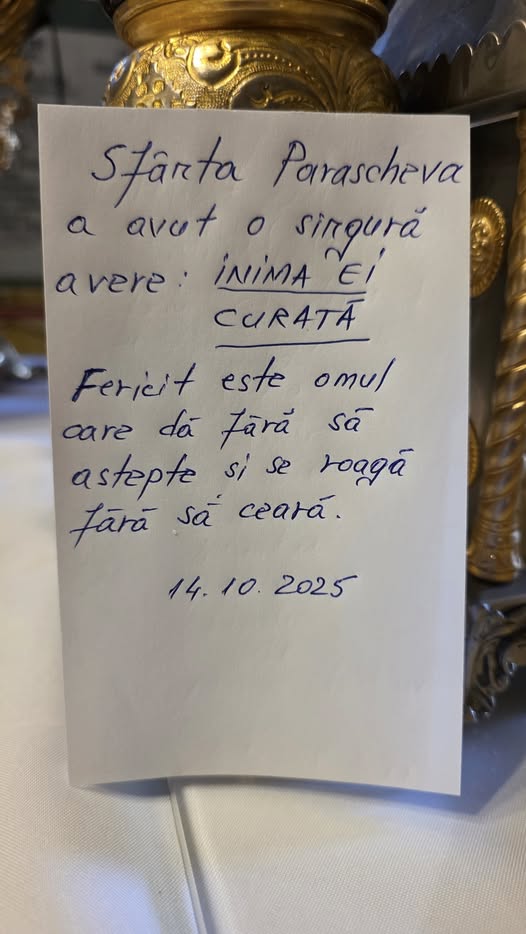 Sfânta Parascheva
a avut o singură
avere: INIMA EI
CURATĂ
Fericit este omul
care dă fără să
astepte si se roagă
fără să ceară.
14.10.2025